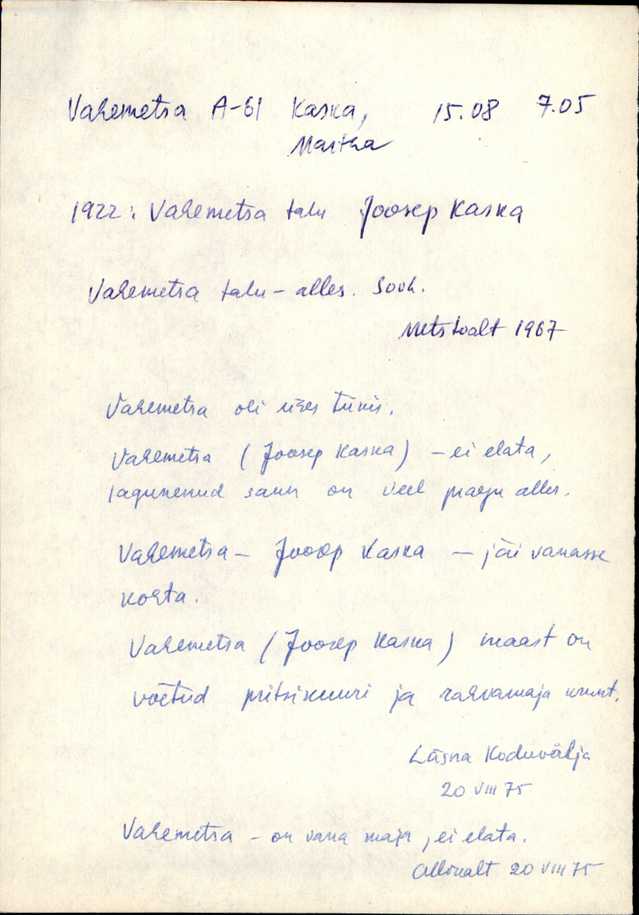 Vahemetsa A-61 Kaska, 15.08 7.05
Martha
1922: Vahemetsa talu Joosep Kaska
Vahemetsa talu - alles. Sooh.
Metstoalt 1967
Vahemetsa oli ühes tükis.
Vahemetsa (Joosep Kaska) - ei elata,
lagunenud saun on veel praegu alles.
Vahemetsa - Joosep Kaska - jäi vanasse
kohta.
Vahemetsa (Joosep Kaska) maast on
võetud pritsikuuri ja rahvamaja krunt.
Läsna Koduvälja
20 VIII 75
Vahemetsa - on vana maja, ei elata.
Allovalt 20 VIII 75